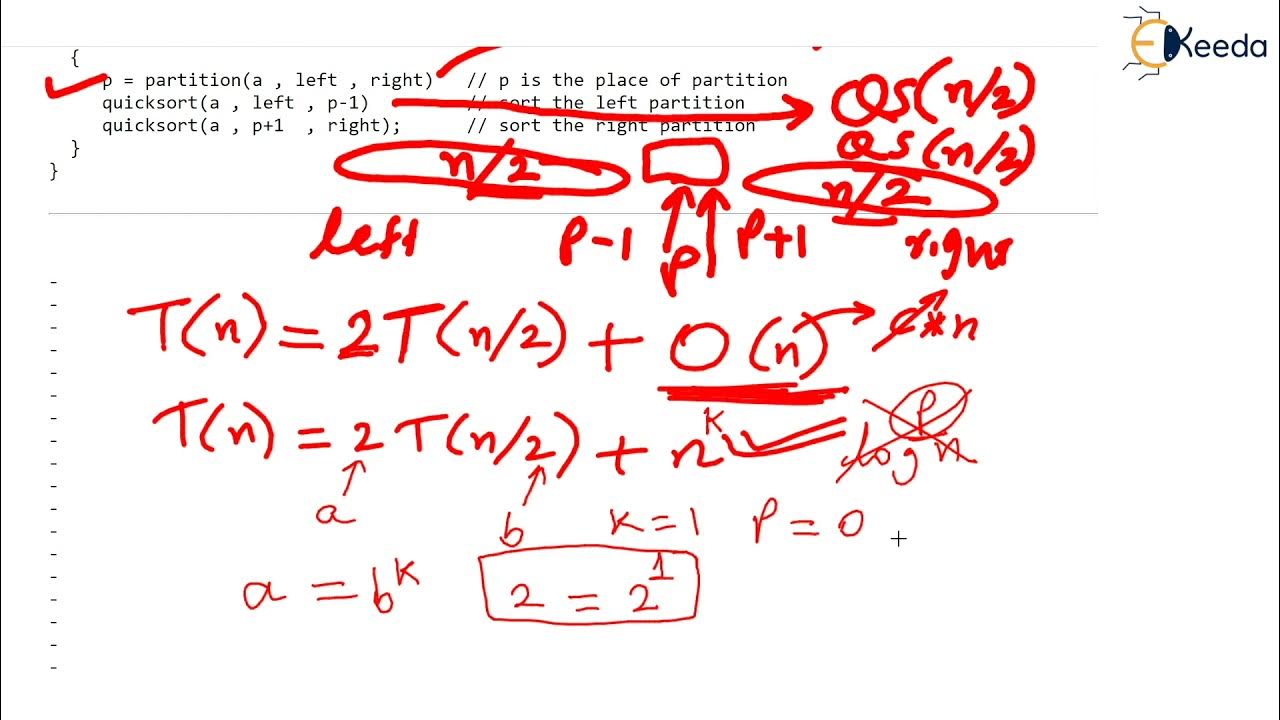 EKeeda
{
p = partition(a , left , right) // p is the place of partition
quicksort(a , left , p-1) // sort the left partition
quicksort(a , p+1 , right); // sort the right partition
}
}
QS(n/2)
QS(n/2)
n/2 n/2
left P-1 P P+1 right
T(n) = 2T(n/2) + O(n) c*n
T(n) = 2T(n/2) + n^k log^p n
a b k=1 P=0
a = b^k 2 = 2^1